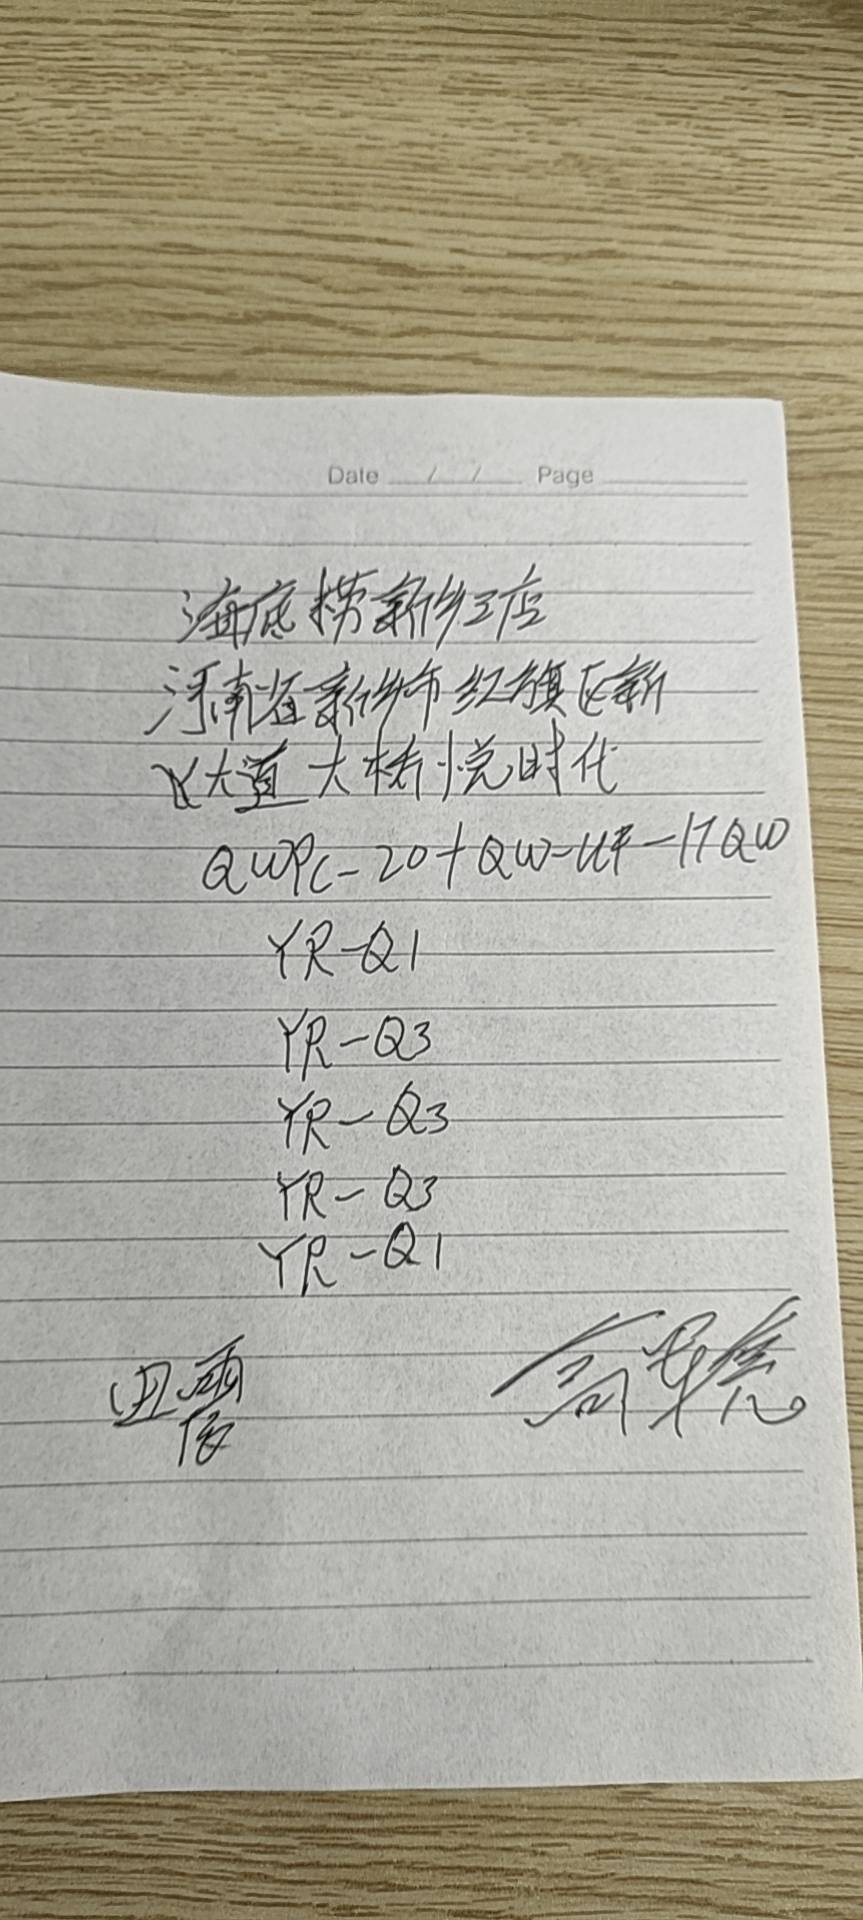 Date / / Page
海底捞新乡店
河南省新乡市红旗区新
大道大桥悦时代
QWPC-20+QW-UF-17QW
YR-Q1
YR-Q3
YR-Q3
YR-Q3
YR-Q1